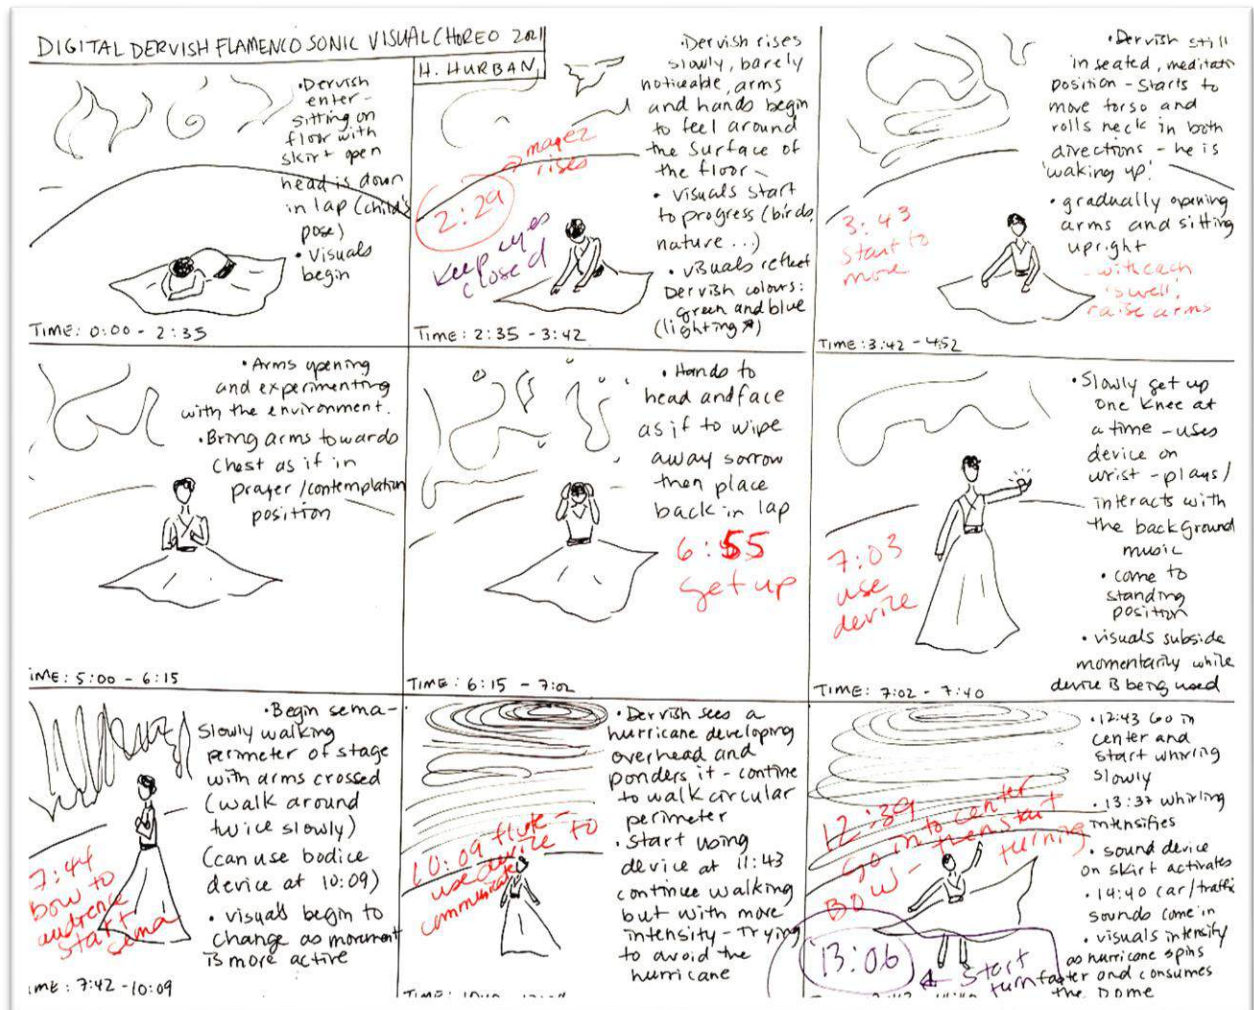 DIGITAL DERVISH FLAMENCO SONIC VISUAL CHOREO 2021
H. HURBAN
• Dervish
enter -
sitting on
floor with
skirt open
head is down
in lap (child's
pose)
• Visuals
begin
TIME: 0:00 - 2:35
• Dervish rises
slowly, barely
noticeable, arms
and hands begin
to feel around
the surface of
the floor -
• visuals start
to progress (birds,
nature ...)
• visuals reflect
Dervish colours:
green and blue
(lighting)
2:29
rises
Keep eyes
closed
TIME: 2:35 - 3:42
• Dervish still
in seated, meditati
position - starts to
move torso and
rolls neck in both
directions - he is
'waking up'.
• gradually opening
arms and sitting
upright
- with each
'swell',
raise arms
3:43
start to
move
TIME: 3:42 - 4:52
• Arms opening
and experimenting
with the environment.
• Bring arms towards
chest as if in
prayer/contemplation
position
IME: 5:00 - 6:15
• Hands to
head and face
as if to wipe
away sorrow
then place
back in lap
6:55
get up
TIME: 6:15 - 7:02
• Slowly get up
one knee at
a time - uses
device on
wrist - plays/
interacts with
the background
music
• come to
standing
position
• visuals subside
momentarily while
device is being used
7:03
use
device
TIME: 7:02 - 7:40
• Begin sema -
slowly walking
perimeter of stage
with arms crossed
(walk around
twice slowly)
(can use bodice
device at 10:09)
• visuals begin to
change as movement
is more active
7:44
bow to
audience
start
sema
IME: 7:42 - 10:09
• Dervish sees a
hurricane developing
overhead and
ponders it - contine
to walk circular
perimeter
• Start using
device at 11:43
continue walking
but with more
intensity - Trying
to avoid the
hurricane
10:09 flute -
use device to
communicate
• 12:43 Go in
center and
start whirling
slowly
• 13:37 whirling
intensifies
• sound device
on skirt activates
• 14:40 car/traffic
sounds come in
• visuals intensity
as hurricane spins
faster and consumes
the Dome
12:39
Go into center
Bow - then start
turning
13:06
start
turn